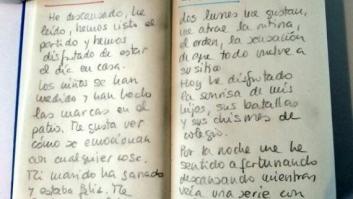 He descansado, he
leído, hemos visto el
partido y hemos
disfrutado de estar
el día en casa.
Los niños se han
medido y han hecho
las marcas en el
patio. Me gusta ver
cómo se emocionan
con cualquier cosa.
Mi marido ha ganado
y estaba feliz. Me
Los lunes me gustan,
me atrae la rutina,
el orden, la sensación
de que todo vuelve a
su sitio.
Hoy he disfrutado
la sonrisa de mis
hijos, sus batallas
y sus chismes de
colegio.
Por la noche me he
sentido afortunando
descansando mientras
veía una serie con